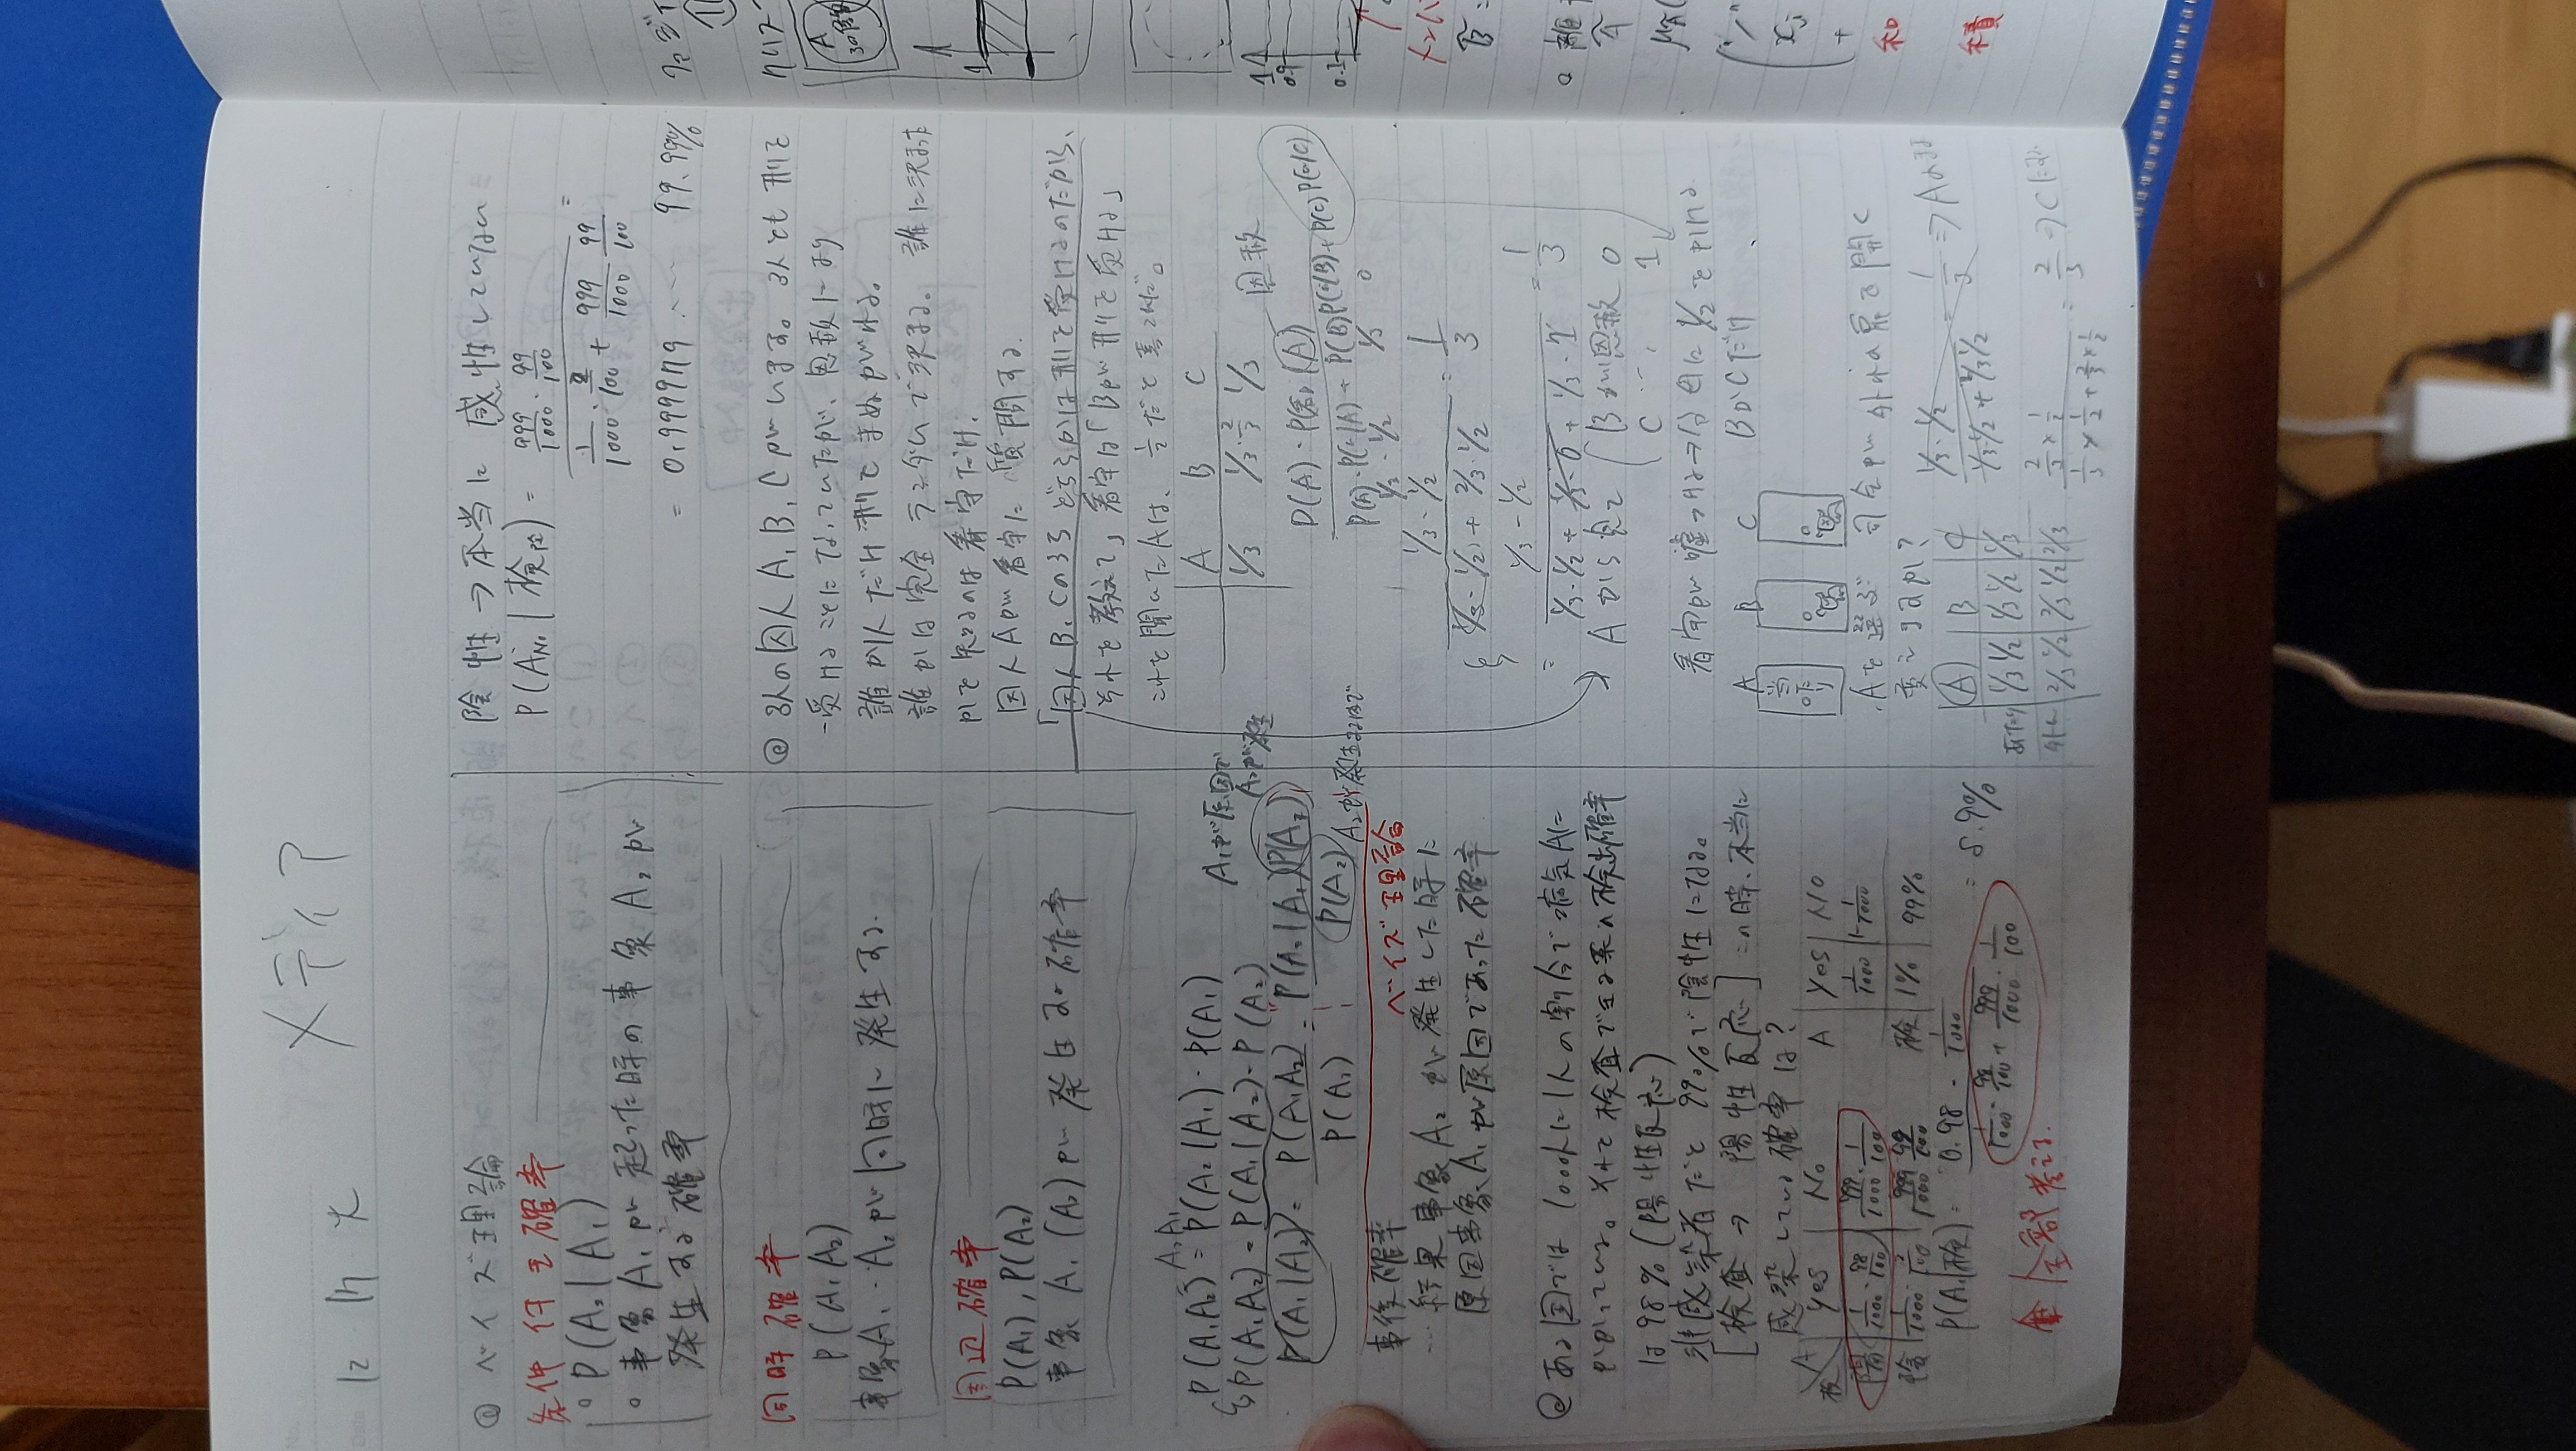 メディア
12 17 火
ベイズ理論
条件付き確率
P(A₂|A₁)
事象A₁が起った時の事象A₂が
発生する確率
同時確率
P(A₁A₂)
事象A₁・A₂が同時に発生する.
周辺確率
P(A₁), P(A₂)
事象A₁(A₂)が発生する確率
A₂A₁
P(A₁A₂) = P(A₂|A₁)・P(A₁)
P(A₁A₂) = P(A₁|A₂)・P(A₂)
A₁が原因で
A₂が発生
P(A₁|A₂) = P(A₁A₂) / P(A₂)
事後確率
ベイズ理論
… 結果事象A₂が発生した時に
原因事象A₁が原因であった確率
@ ある国では1000人に1人の割合で病気Aに
かかっている。それを検査できる薬の検出確率
は98%(陽性反応)
非感染者だと99%で陰性になる。
[検査→陽性反応]この時、本当に
感染している確率は?
検 A Yes No
陽 1/1000・98/100 999/1000・1/100
陰 1/1000・2/100 999/1000 99/100
A Yes No
1/1000 1-1/1000
検 1% 99%
P(A|検) = 0.98・1/1000 / 1/1000・98/100 + 999/1000・1/100 = 8.9%
全部考える.
陰性→本当に感性していない
P(A_No|検陰) = 999/1000・99/100 / 1/1000・2/100 + 999/1000 99/100 =
= 0.999979 … 99.99%
@ 3人の囚人A, B, Cがいます。3人とも刑を
受けることになっていたが、恩赦により
誰か1人だけ刑をまぬがれる。
誰かは完全ランダムで決まる。誰に決まった
かを知るのは看守だけ.
囚人Aが看守に質問する.
「囚人B, Cのうちどちらかは刑を受けるのだから、
それを教えて」看守は「Bが刑を受ける」
これを聞いたAは、1/2だと喜んだ。
A B C
1/3 1/3・2/3 1/3
恩赦
1/3・1/2 / (1/3・1/2) + 2/3・1/2 = 1/3
= 1/3・1/2 / 1/3・1/2 + 1/3・0 + 1/3・1 = 1/3
Aから見て Bが恩赦 0
C … 1
看守が嘘つける→分母に1/2をかける
BかCだけ
A B C
当たり
Aを選ぶ 司会が外れの扉を開く
変えますか?
A B C
あたり 1/3 1/2 1/3 1/2 1/3
外れ 2/3 1/2 2/3 1/2 2/3
1/3・1/2 / 1/3・1/2 + 2/3 1/2 = 1/3 ⇒ Aのまま
2/3×1/2 / 1/3×1/2+2/3×1/2 = 2/3 ⇒ Cに
ファジィ
クリスプ
A
1
0.9
0.3
和
積